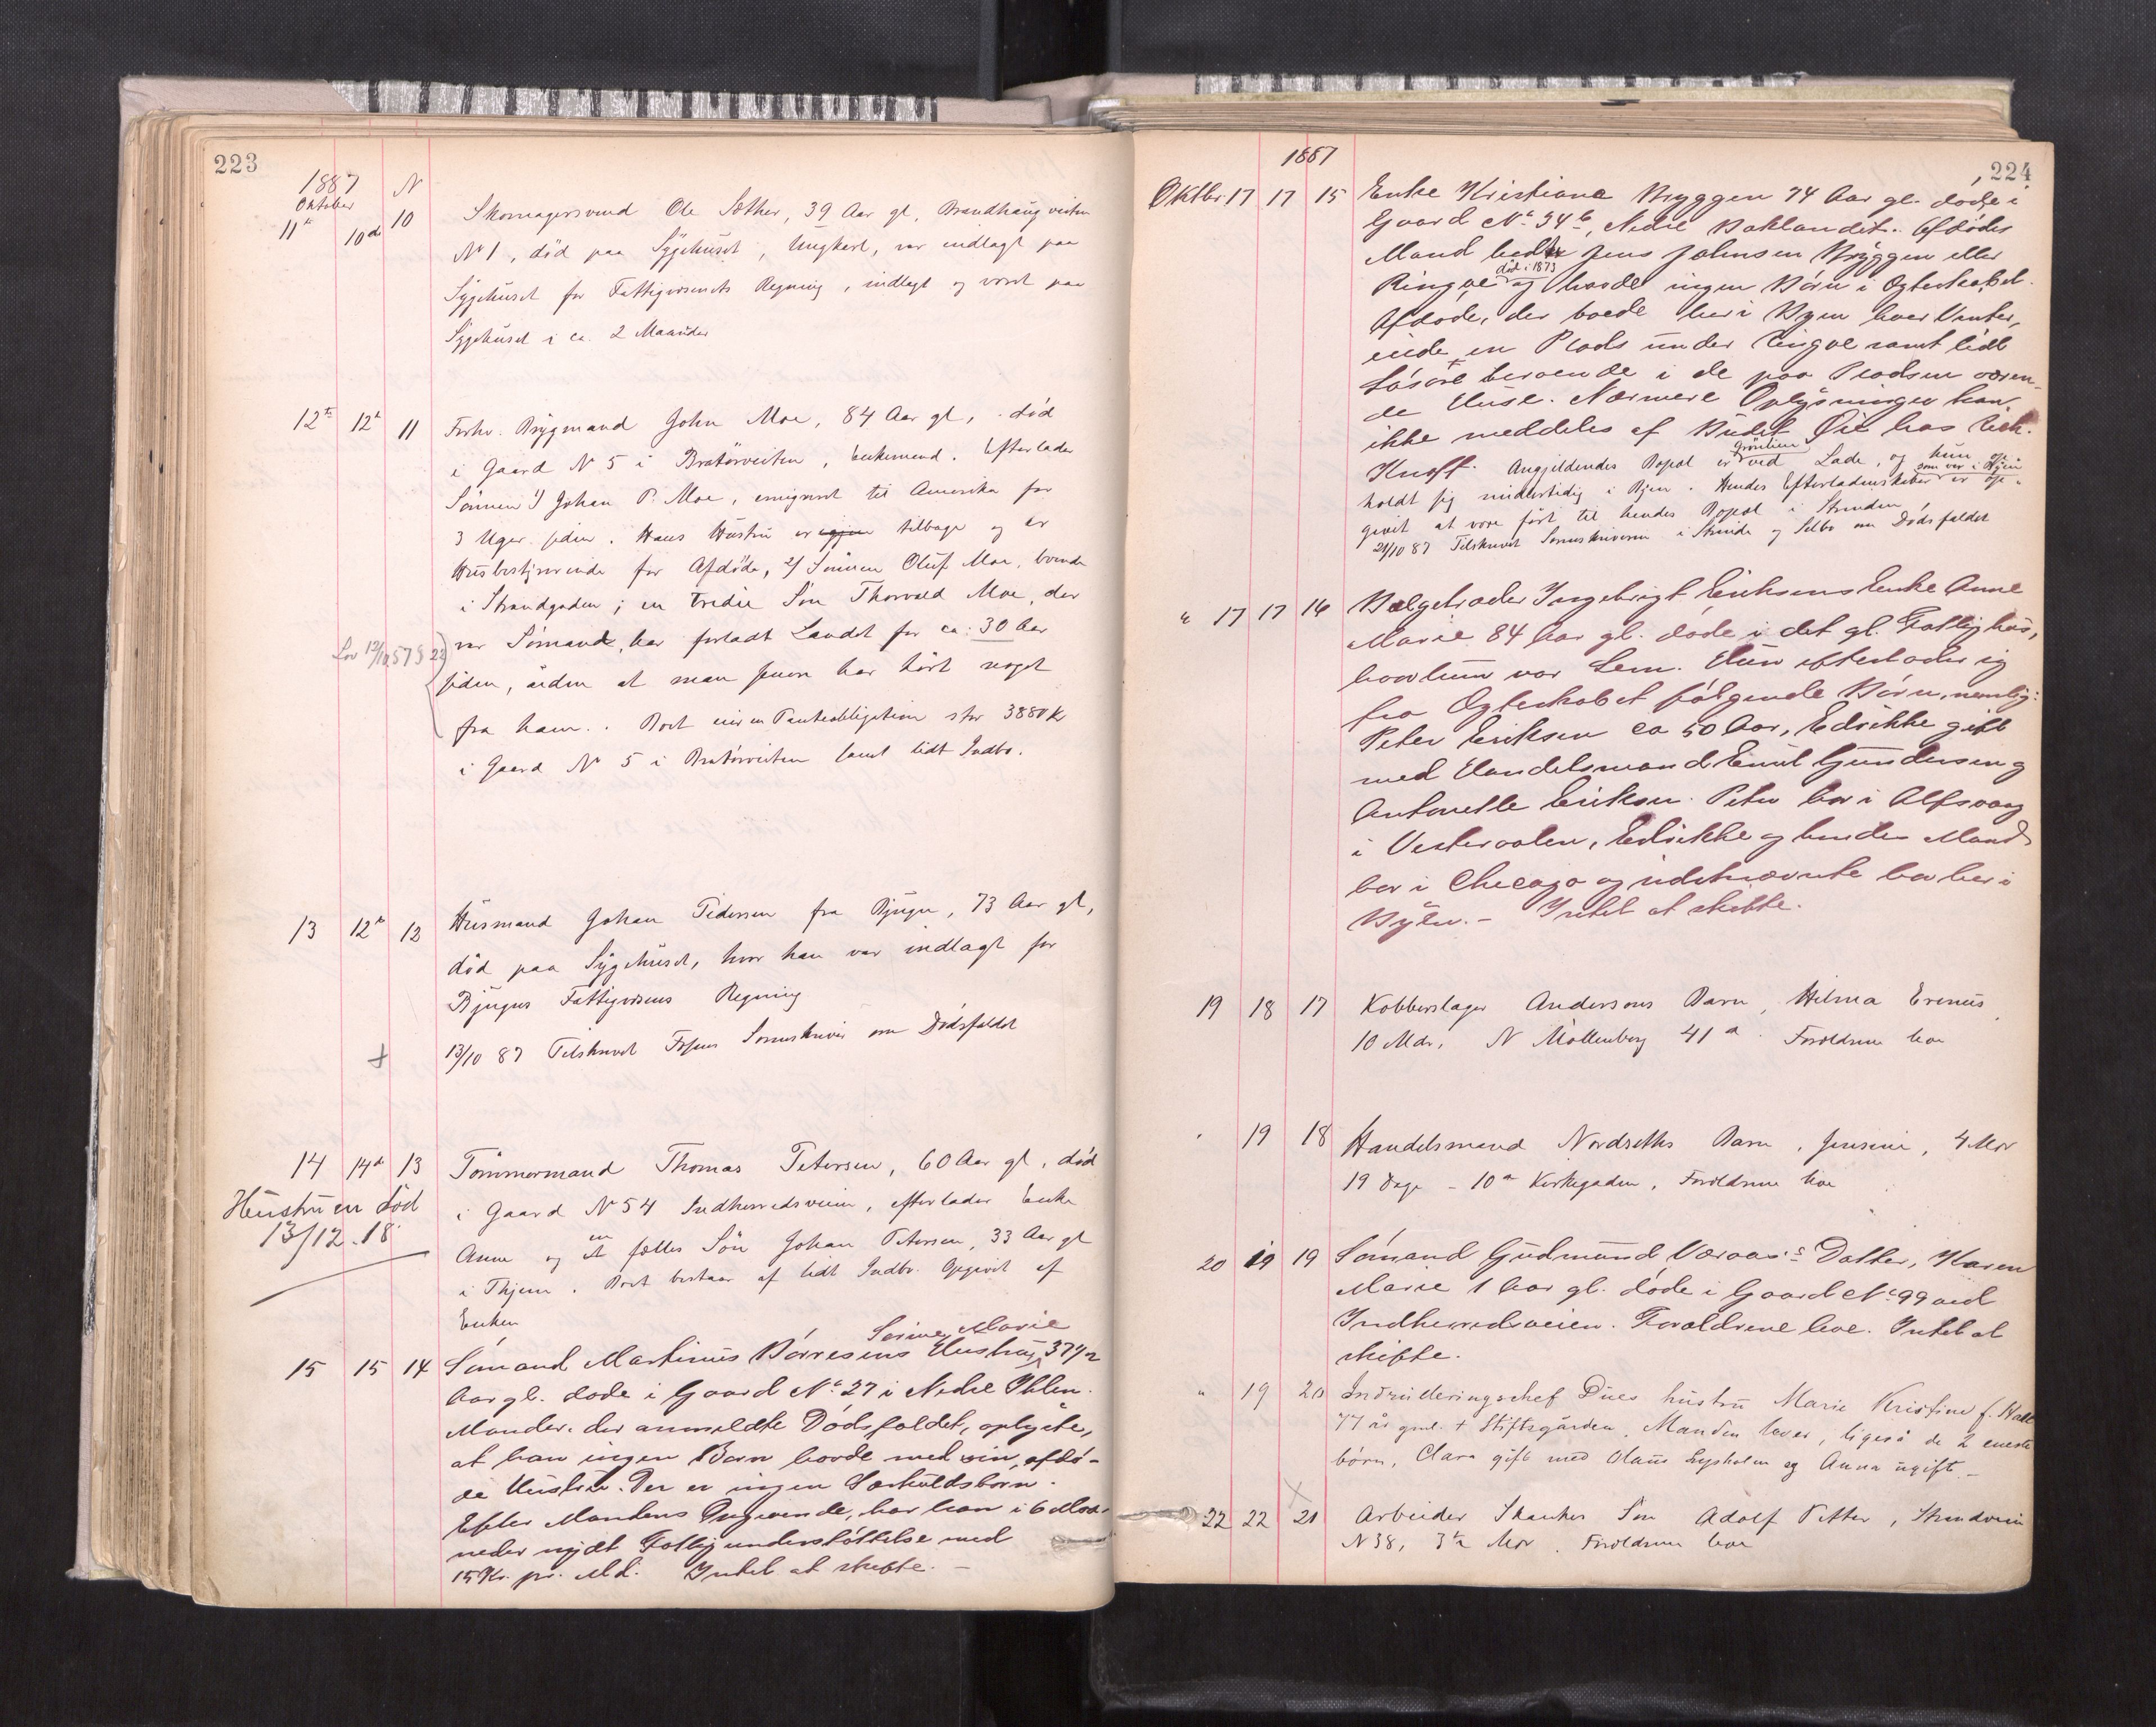 223
1887 N
Oktober
11te 10de 10 Skomagersvend Ole Sæther, 39 Aar gl, Brandhaugveiten
N 1, död paa Sygehuset, Ungkarl, var indlagt paa
Sygehuset for Fattigvæsenets Regning, indlagt og været paa
Sygehuset i ca. 2 Maaneder
12te 12te 11 Forhv. Brygmand John Moe, 84 Aar gl, död
i Gaard N 5 i Bratörveiten, Enkemand. Efterlader
Sönnen 1) Johan P. Moe, emigreret til Amerika for
3 Uger siden. Hans Hustru er igjen tilbage og er
Husbestyrerinde for Afdöde, 2) Sönnen Oluf Moe, boende
i Strandgaden; en tredie Sön Thorvald Moe, der
Lov 12/10 57 § 22 var Sömand, har forladt Landet for ca: 30 Aar
siden, uden at man senere har hört noget
fra ham. Boet eier en Panteobligation stor 3880 Kr
i Gaard N 5 i Bratörveiten samt lidt Indbo.
13 12te 12 Husmand Johan Pedersen fra Bjugn, 73 Aar gl,
död paa Sygehuset, hvor han var indlagt for
Bjugns Fattigvæsens Regning
+ 13/10 87 Tilskrevet Fosens Sorenskriver om Dödsfaldet
14 14de 13 Tömmermand Thomas Petersen, 60 Aar gl, död
Hustruen död i Gaard N 54 Indherredsveien, efterlader Enke
en
13/12 . 18 Anne og et fælles Sön Johan Petersen, 33 Aar gl
i Thjem. Boet bestaar af lidt Indbo. Opgivet af
Enken
Serine Marie
15 15 14 Sömand Martinus Börresens Hustru, 37 1/2
Aar gl. döde i Gaard No 27 i Nedre Ihlen.
Manden, der anmeldte Dödsfaldet, oplyste,
at han ingen Børn havde med sin afdö-
de Hustru. Der er ingen Særkuldsbørn.
Efter Mandens Angivende, har han i 6 Maa-
neder nydt Fattigunderstöttelse med
15 Kr. pr. Md. Intet at skifte. –
1887
224
Oktbr. 17 17 15 Enke Kristiane Bryggen 74 Aar gl. döde i
Gaard No 34b, Nedre Baklandet. Afdödes
Mand hedte Jens Johnsen Bryggen eller
död i 1873
Ringve og havde ingen Börn i Ægteskabet.
Afdöde, der boede her i Byen hver Vinter,
eiede en Plads under Ringve samt lidt
Lösöre beroende i de paa Pladsen væren-
de Huse. Nærmere Oplysninger kan
ikke meddeles af Budet Öie hos
Grönlien
Knoff. Angjeldendes Bopæl er ved Lade, og hun op-
som var i Byen
holdt sig midlertidig i Byen. Hendes Efterladenskaber er op-
givet at være fört til hendes Bopæl i Strinden
21/10 87 Tilskrevet Sorenskriveren i Strinde og Selbo om Dödsfaldet
" 17 17 16 Bælgetræder Ingebrigt Eriksens Enke Anne
Marie 84 Aar gl. döde i det gl. Fattighus,
hvor hun var Lem. Hun efterlader sig
fra Ægteskabet fölgende Börn, nemlig:
Peter Eriksen ca 50 Aar, Edrikke gift
med Handelsmand Emil Gundersen og
Antonette Eriksen. Peter bor i Alfsvaag
i Vesteraalen, Edrikke og hendes Mand
bor i Checago og sidstnævnte bor her i
Byen. – Intet at skifte.
19 18 17 Kobberslager Andersens Barn, Hilma Erenus
10 Mdr, N Möllenberg 41a. Forældrene leve
" 19 18 Handelsmand Nordseths Barn, Jensine, 4 Mdr
19 Dage – 10a Kirkegaden, Forældrene leve
20 19 19 Sömand Gudmund Væraas's Datter, Karen
Marie 1 Aar gl. döde i Gaard No 99 ved
Indherredsveien. Forældrene leve. Intet at
skifte.
" 19 20 Indrulleringschef Dues hustru Marie Kristine f. Hall
77 år gml. + Stiftsgården, Manden lever, ligeså de 2 eneste
börn, Clara gift med Olaus Lysholm og Anna ugift. –
22 22 21 Arbeider Skankes Sön Adolf Petter, Strandveien
N 38, 3 1/2 Mdr. Forældrene leve